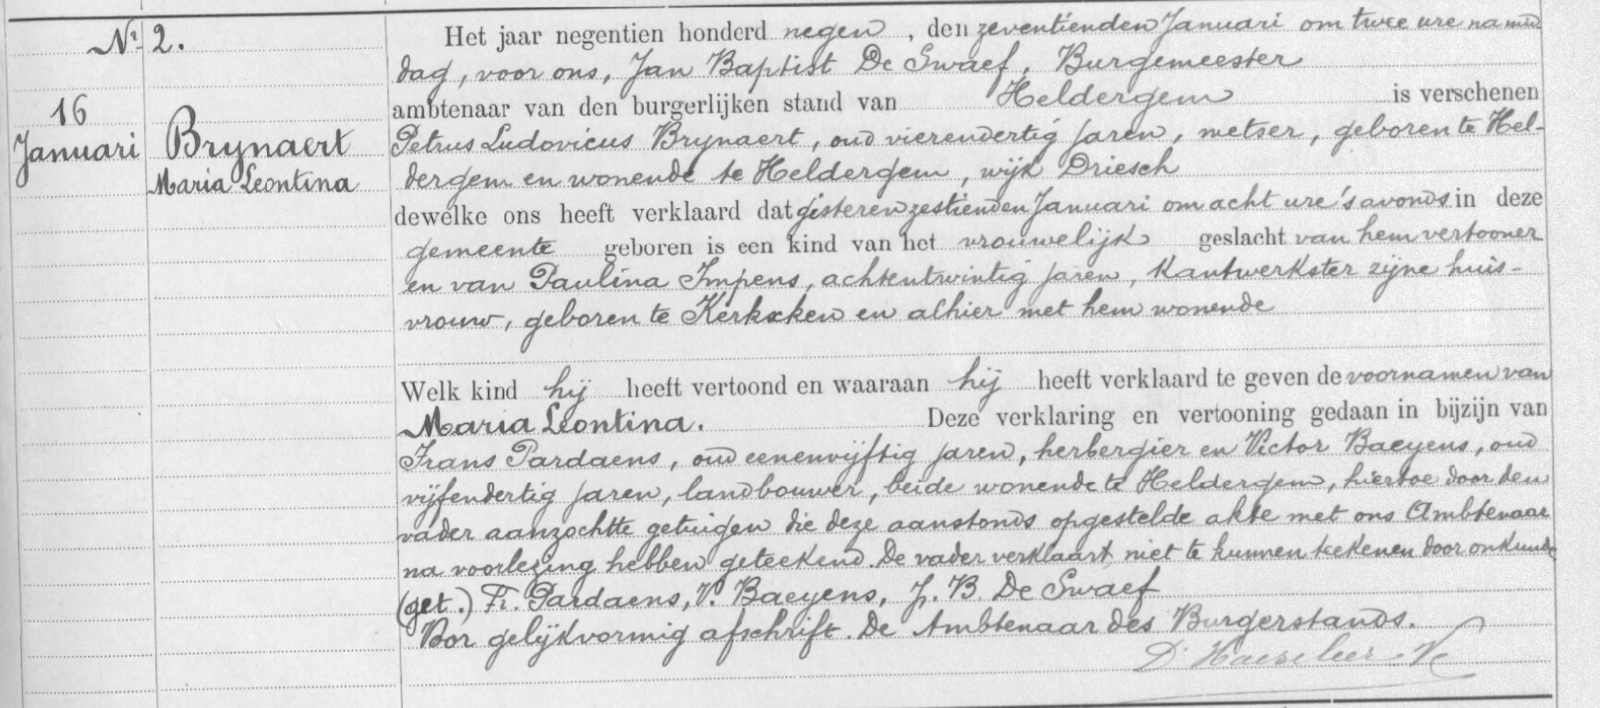 Nr 2.
16
Januari
Brynaert
Maria Leontina
Het jaar negentien honderd negen, den zeventienden Januari om twee ure na mid
dag, voor ons, Jan Baptist De Swaef, Burgemeester
ambtenaar van den burgerlijken stand van Heldergem is verschenen
Petrus Ludovicus Brynaert, oud vierendertig jaren, metser, geboren te Hel-
dergem en wonende te Heldergem, wijk Driesch
dewelke ons heeft verklaard dat gisteren zestienden Januari om acht ure 's avonds in deze
gemeente geboren is een kind van het vrouwelijk geslacht van hem vertooner
en van Paulina Impens, achtentwintig jaren, kantwerkster zijne huis-
vrouw, geboren te Kerksken en alhier met hem wonende
Welk kind hij heeft vertoond en waaraan hij heeft verklaard te geven de voornamen van
Maria Leontina. Deze verklaring en vertooning gedaan in bijzijn van
Frans Pardaens, oud eenenvijftig jaren, herbergier en Victor Baeyens, oud
vijfendertig jaren, landbouwer, beide wonende te Heldergem, hiertoe door den
vader aanzochte getuigen die deze aanstonds opgestelde akte met ons Ambtenaar
na voorlezing hebben geteekend. De vader verklaart niet te kunnen teekenen door onkunde
(get.) Fr. Pardaens, V. Baeyens, J. B. De Swaef
Voor gelijkvormig afschrift. De Ambtenaar des Burgerstands.